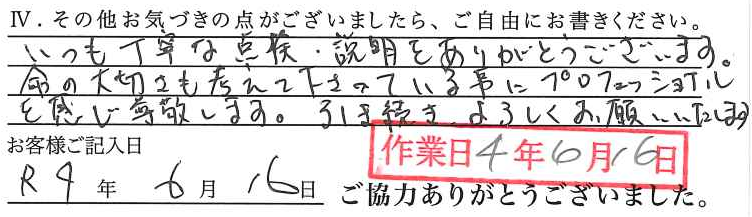 Ⅳ．その他お気づきの点がございましたら、ご自由にお書きください。
いつも丁寧な点検・説明をありがとうございます。
命の大切さも考えて下さっている事にプロフェッショナル
を感じ尊敬します。引き続き、よろしくお願いいたします
お客様ご記入日
R4年 6月 16日
作業日4年6月16日
ご協力ありがとうございました。